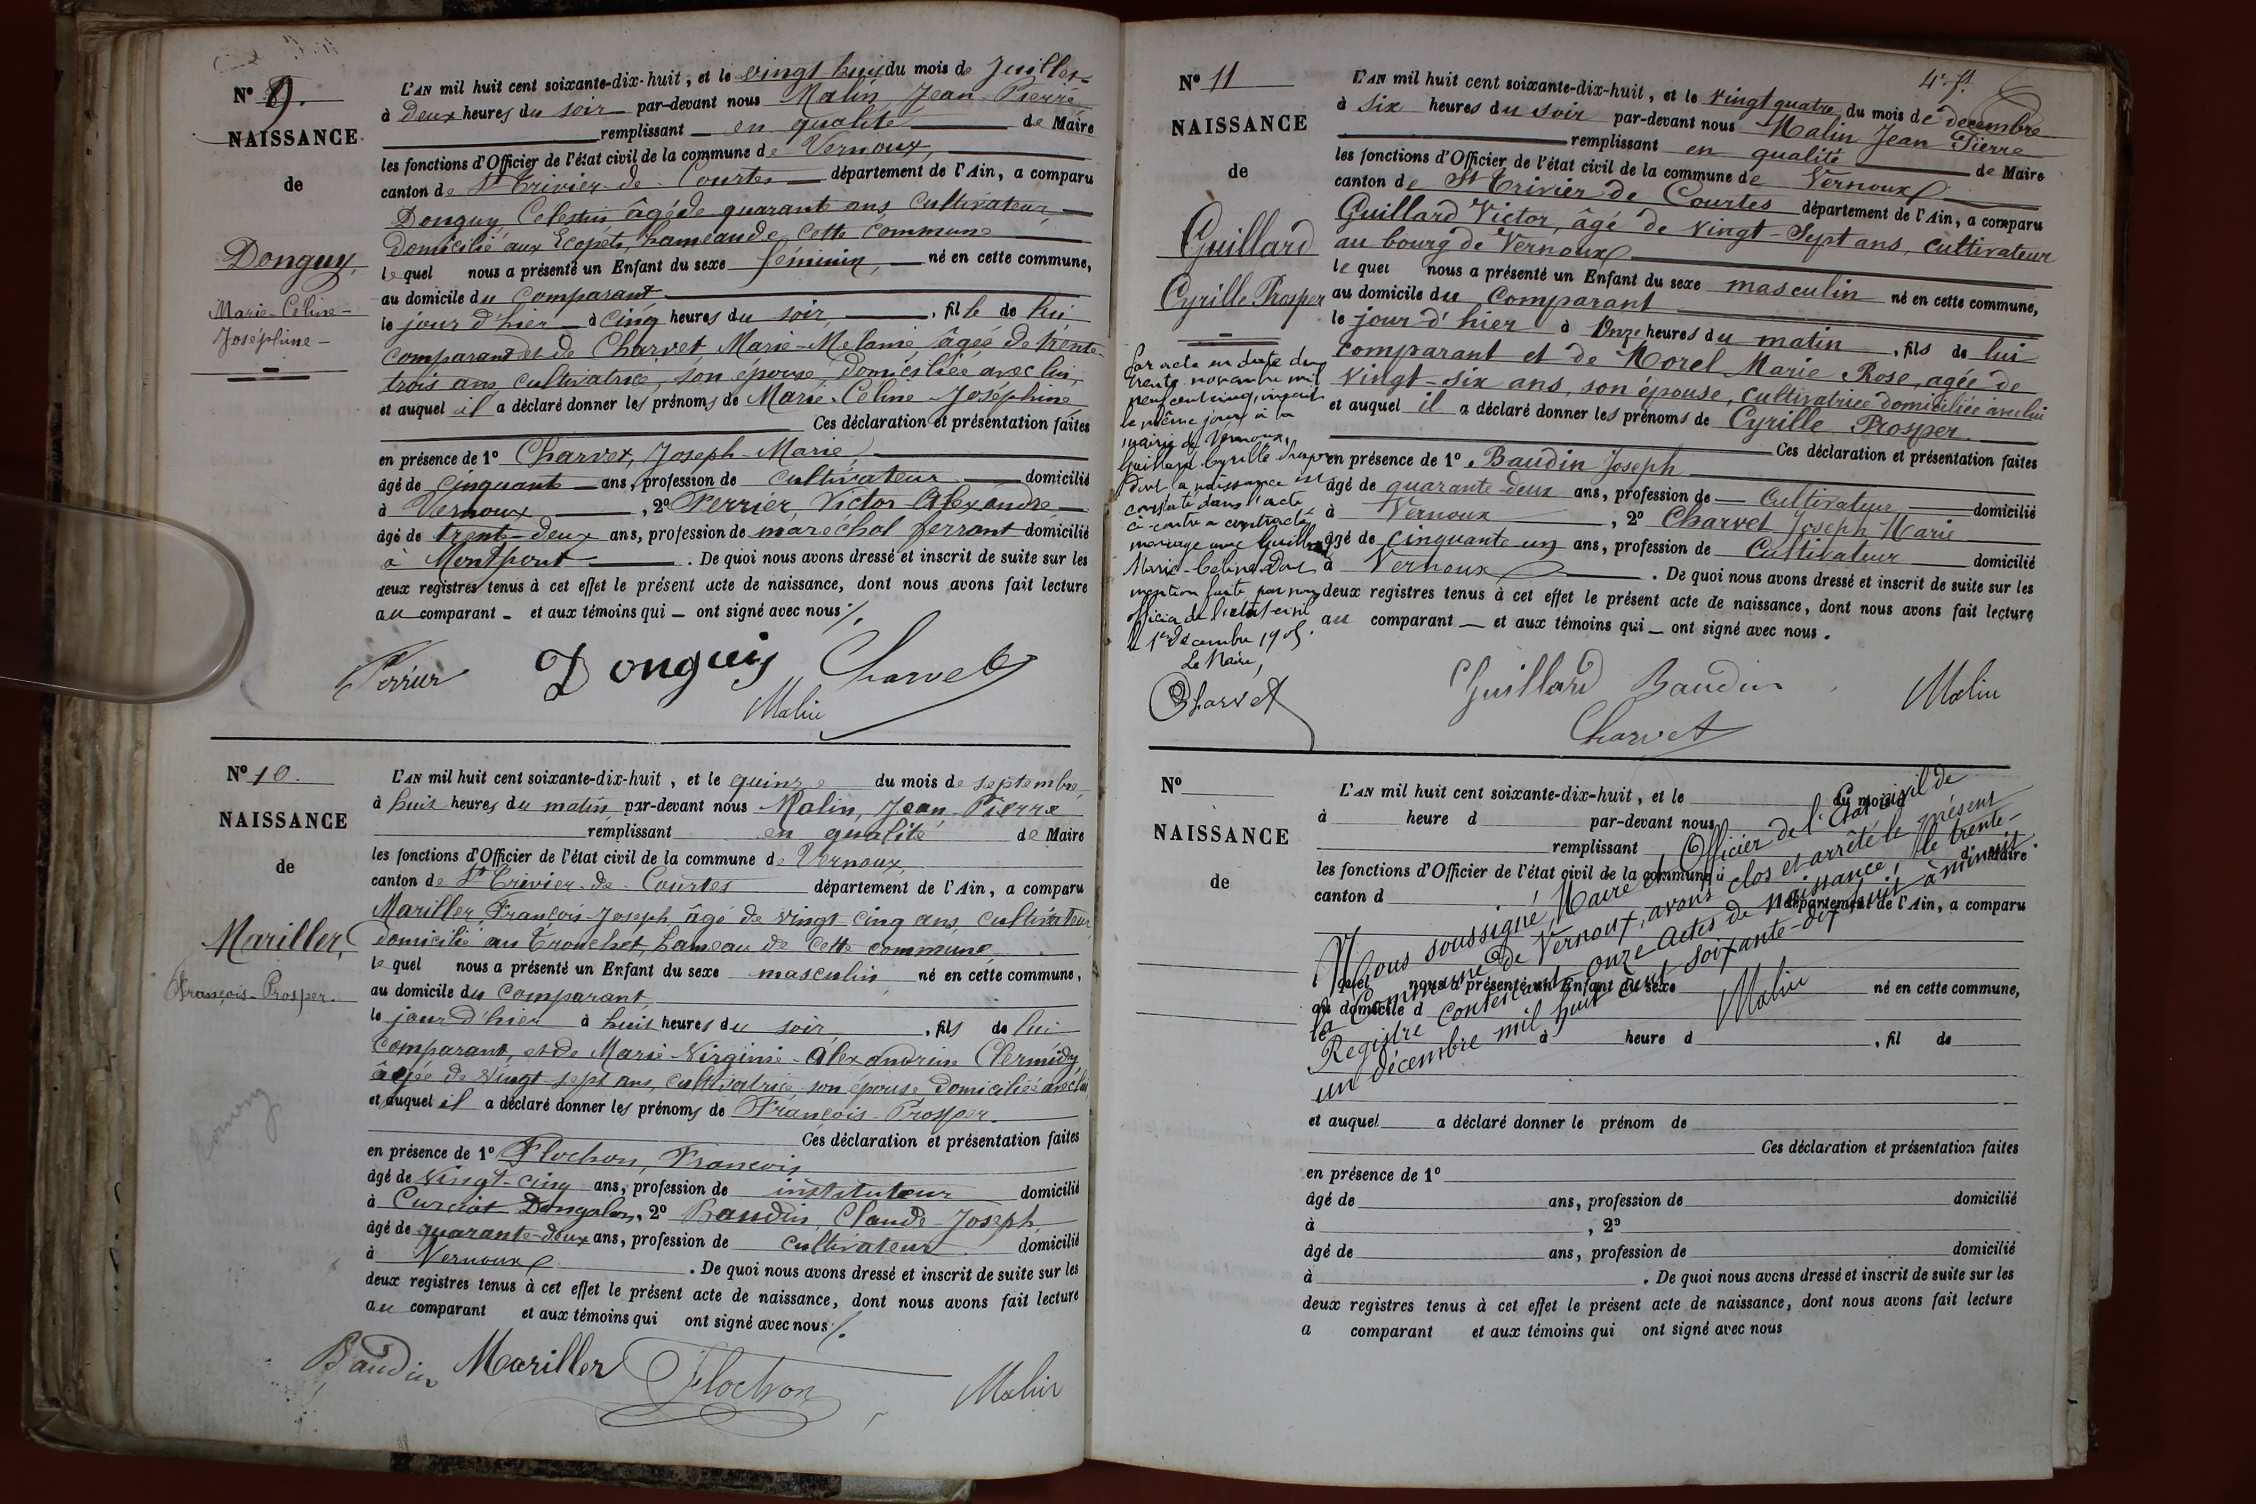 N° 9.
NAISSANCE
de
Donguy,
Marie-Céline-
Joséphine-
L'AN mil huit cent soixante-dix-huit, et le vingt huit du mois de Juillet
à deux heures du soir par-devant nous Malin Jean-Pierre
remplissant en qualité de Maire
les fonctions d'Officier de l'état civil de la commune de Vernoux,
canton de St Trivier-de-Courtes département de l'Ain, a comparu
Donguy Celestin âgé de quarante ans cultivateur
domicilié aux Ecopets, hameau de cette commune
le quel nous a présenté un Enfant du sexe féminin, né en cette commune,
au domicile du comparant
le jour d'hier à cinq heures du soir, fille de lui
comparant et de Charvet Marie-Melanie âgée de trente-
trois ans cultivatrice, son épouse domiciliée avec lui,
et auquel il a déclaré donner les prénoms de Marie-Céline-Joséphine
Ces déclaration et présentation faites
en présence de 1° Charvet, Joseph-Marie
âgé de cinquante ans, profession de cultivateur domicilié
à Vernoux, 2° Perrier, Victor Alexandre
âgé de trente-deux ans, profession de maréchal ferrant domicilié
à Montpont. De quoi nous avons dressé et inscrit de suite sur les
deux registres tenus à cet effet le présent acte de naissance, dont nous avons fait lecture
au comparant - et aux témoins qui - ont signé avec nous ./.
Perrier Donguy Charvet
Malin
N° 10.
NAISSANCE
de
Mariller,
François-Prosper.
L'AN mil huit cent soixante-dix-huit, et le quinze du mois de septembre,
à huit heures du matin, par-devant nous Malin, Jean-Pierre
remplissant en qualité de Maire
les fonctions d'Officier de l'état civil de la commune de Vernoux,
canton de St Trivier-de-Courtes département de l'Ain, a comparu
Mariller, François-Joseph, âgé de vingt-cinq ans, cultivateur,
domicilié au Tronchet, hameau de cette commune,
le quel nous a présenté un Enfant du sexe masculin, né en cette commune,
au domicile du comparant,
le jour d'hier à huit heures du soir, fils de lui
comparant, et de Marie-Virginie-Alexandrine Clermidy
âgée de vingt-sept ans, cultivatrice son épouse domiciliée avec lui
et auquel il a déclaré donner les prénoms de François-Prosper.
Ces déclaration et présentation faites
en présence de 1° Flochon, François
âgé de vingt-cinq ans, profession de instituteur domicilié
à Curciat Dongalon, 2° Baudin, Claude-Joseph
âgé de quarante-deux ans, profession de cultivateur domicilié
à Vernoux. De quoi nous avons dressé et inscrit de suite sur les
deux registres tenus à cet effet le présent acte de naissance, dont nous avons fait lecture
au comparant et aux témoins qui ont signé avec nous ./.
Baudin Mariller Flochon Malin
4e ft.
N° 11
NAISSANCE
de
Guillard
Cyrille Prosper
Par acte en date du
trente novembre mil
neuf cent cinq, inscrit
le même jour à la
mairie de Vernoux,
Guillard Cyrille Prosper
dont la naissance est
constatée dans l'acte
ci-contre a contracté
mariage avec Guillard
Marie-Celine Dont
mention faite par nous
officier de l'état civil
le 1er décembre 1905.
Le Maire,
Charvet
L'AN mil huit cent soixante-dix-huit, et le vingt quatre du mois de decembre
à six heures du soir par-devant nous Malin Jean Pierre
remplissant en qualité de Maire
les fonctions d'Officier de l'état civil de la commune de Vernoux
canton de St Trivier de Courtes département de l'Ain, a comparu
Guillard Victor, âgé de vingt-sept ans, cultivateur
au bourg de Vernoux
le quel nous a présenté un Enfant du sexe masculin né en cette commune,
au domicile du comparant
le jour d'hier à onze heures du matin, fils de lui
comparant et de Morel Marie Rose, agée de
vingt-six ans, son épouse, cultivatrice domiciliée avec lui
et auquel il a déclaré donner les prénoms de Cyrille Prosper.
Ces déclaration et présentation faites
en présence de 1°. Baudin Joseph
âgé de quarante-deux ans, profession de cultivateur domicilié
à Vernoux, 2° Charvet Joseph Marie
âgé de cinquante un ans, profession de Cultivateur domicilié
à Vernoux. De quoi nous avons dressé et inscrit de suite sur les
deux registres tenus à cet effet le présent acte de naissance, dont nous avons fait lecture
au comparant - et aux témoins qui - ont signé avec nous.
Guillard Baudin Malin
Charvet
N°
NAISSANCE
de
L'AN mil huit cent soixante-dix-huit, et le du mois d
à heure d par-devant nous
remplissant d Maire
les fonctions d'Officier de l'état civil de la commune d
canton d département de l'Ain, a comparu
lequel nous a présenté un Enfant du sexe né en cette commune,
au domicile d
le à heure d, fil de
Nous soussigné, Maire et Officier de l'Etat civil de
la Commune de Vernoux, avons clos et arrêté le présent
Registre contenant onze actes de naissance, le trente-
un décembre mil huit cent soixante-dix-huit à minuit.
Malin
et auquel a déclaré donner le prénom de
Ces déclaration et présentation faites
en présence de 1°
âgé de ans, profession de domicilié
à , 2°
âgé de ans, profession de domicilié
à . De quoi nous avons dressé et inscrit de suite sur les
deux registres tenus à cet effet le présent acte de naissance, dont nous avons fait lecture
a comparant et aux témoins qui ont signé avec nous